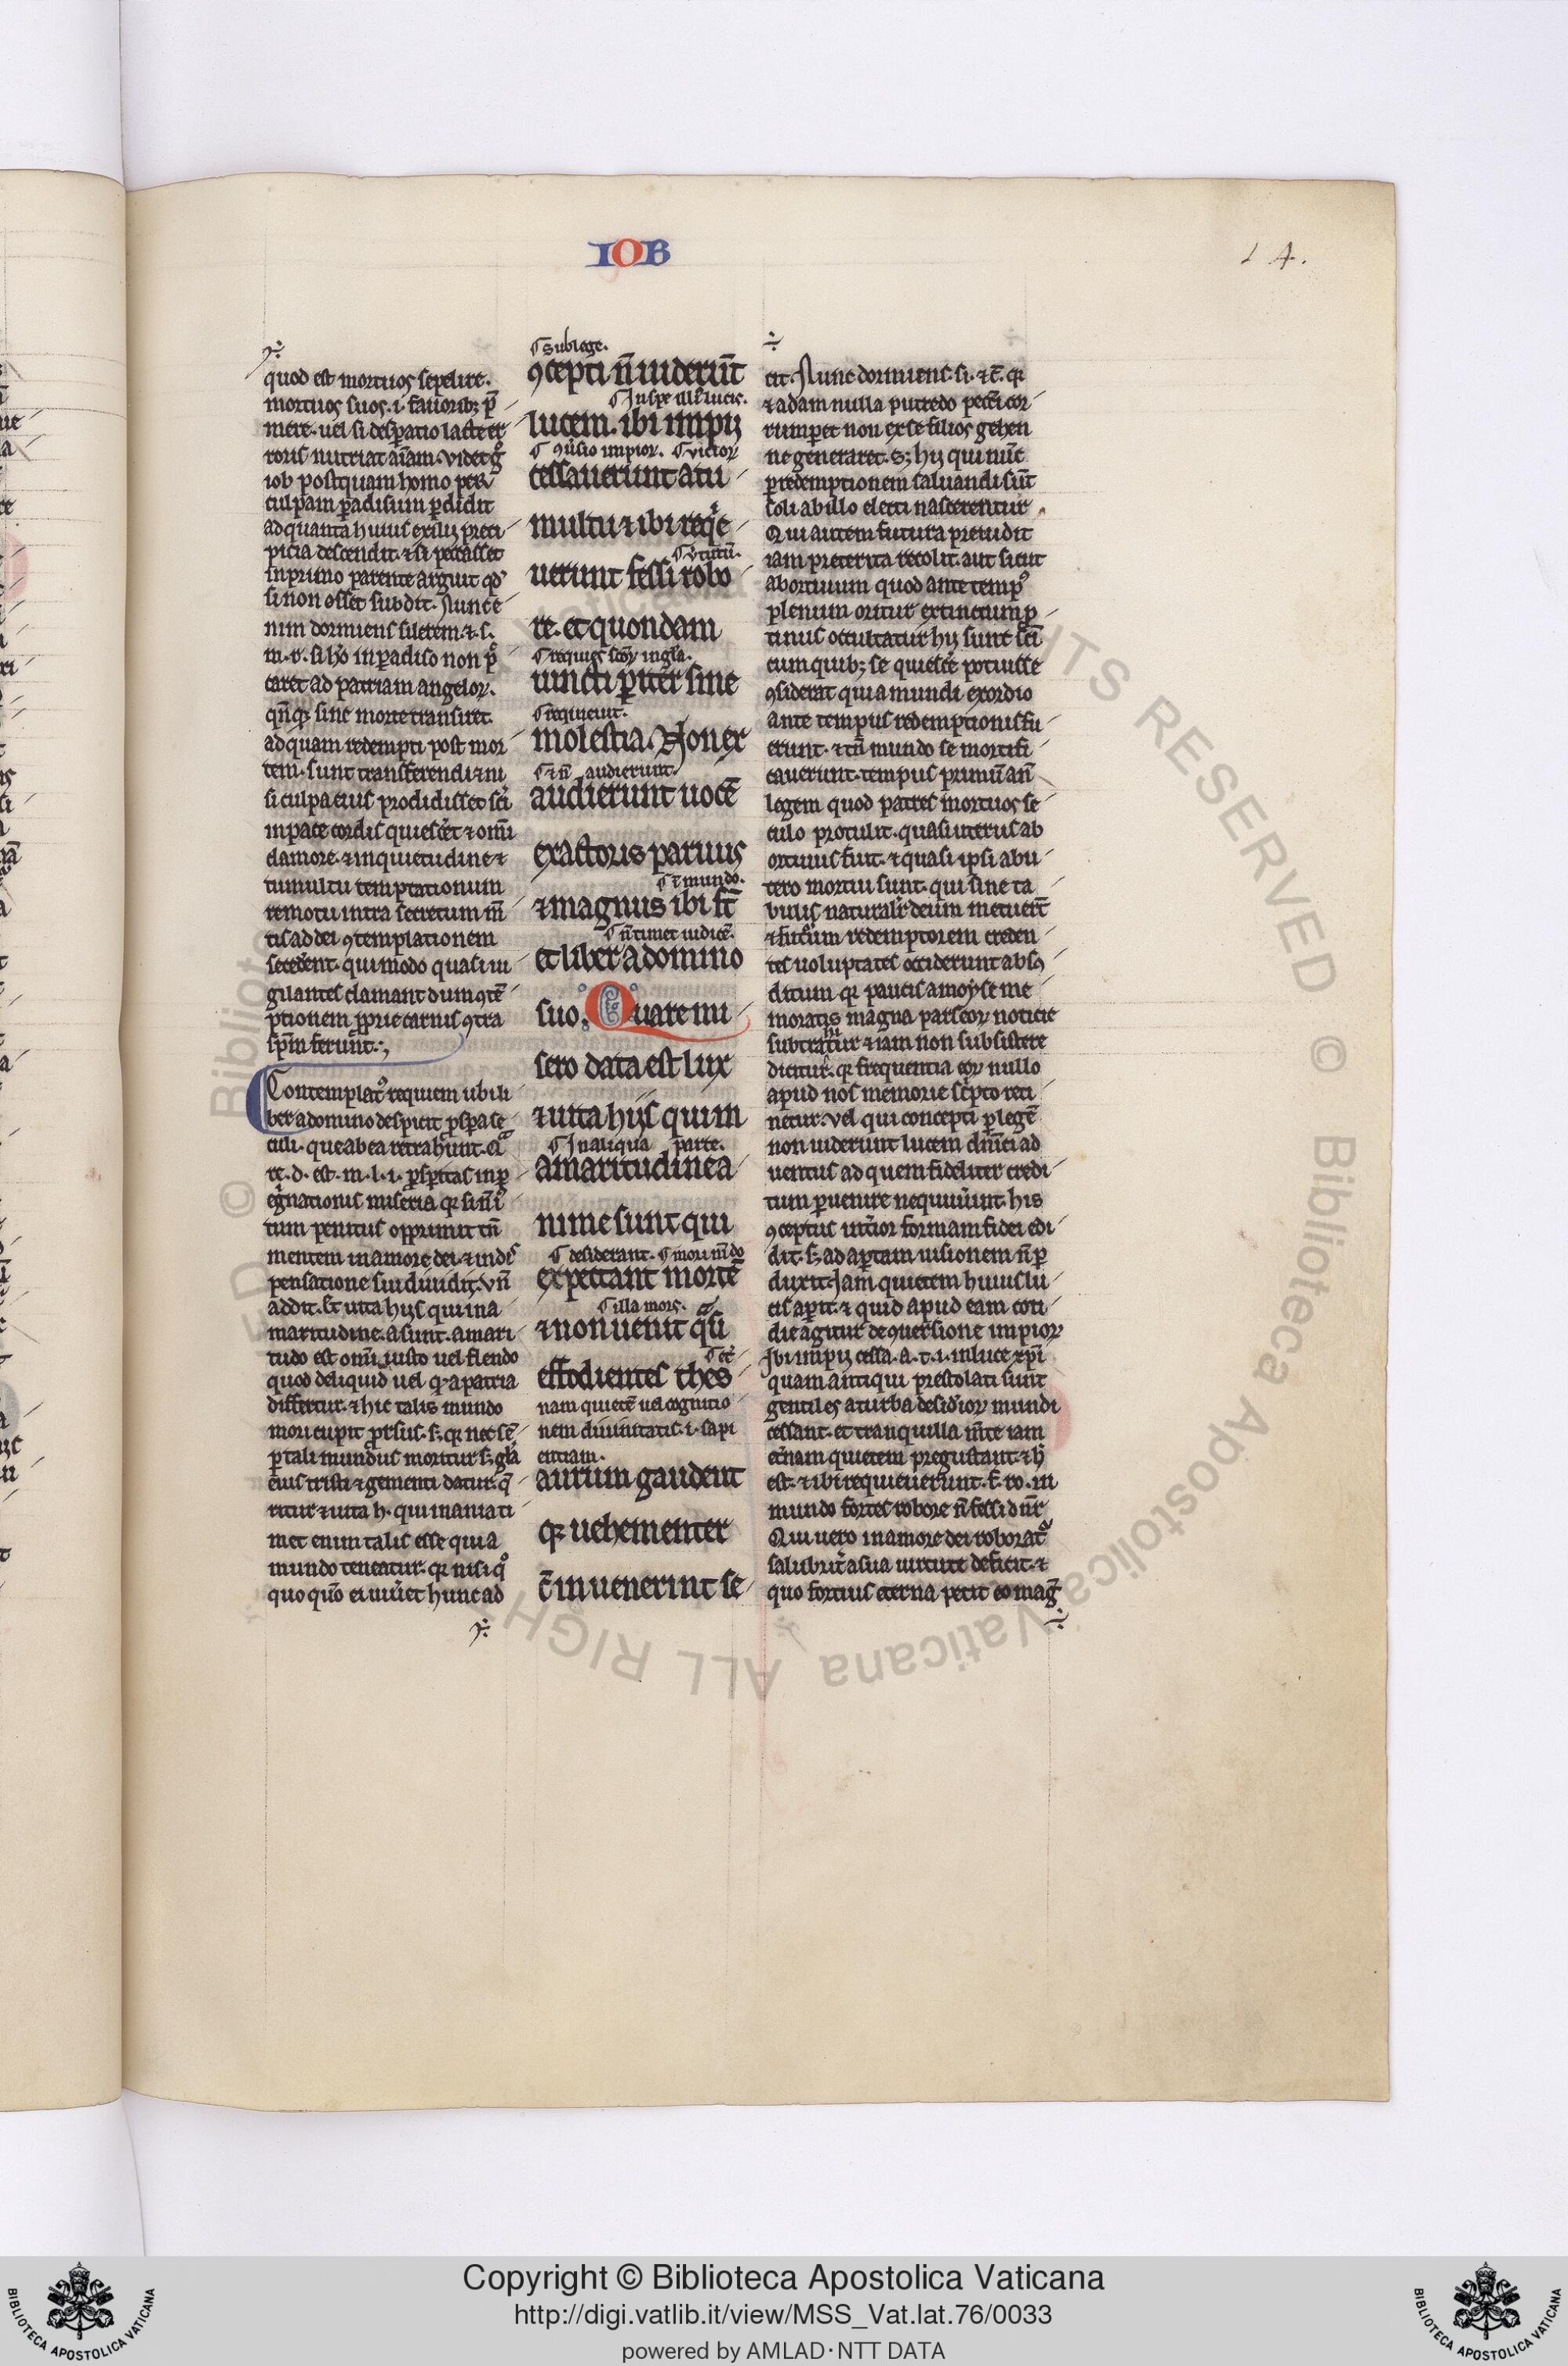 IOB
14.
quod est mortuos sepelire.
mortuos suos .i. fautorib; p̄
mere. uel si desp̄atio lacte er
roris nutriat aīam. Videt gͦ
iob postquam homo per
culpam p̄adisum p̄didit
ad quanta huius exilij preci
picia descendit. ⁊ si peccasset
in primo parente arguit qd'
si non eẜet subdit. Nunc e
nim dormiens silerem. ⁊. s.
m. r. si hō in p̄adiso non p̄
caret ad patriam angeloꝝ.
qn̄qꝫ sine morte transiret.
ad quam redempti post mor
tem. sunt transferendi. ⁊ ni
si culpa eius prodidisset sc̄i
in pace cordis quiesc̄et ⁊ om̄i
clamore. ⁊ inquietudine ⁊
tumultu temptationum
remotu intra secretum m̄
tis ad dei ꝯtemplationem
secederent. qui modo quasi ui
gilantes clamant dum ꝯtē
ptionem p̄prie carnis ꝯtra
sp̄m ferunt.
Contemplatͬ requiem ubi li
ber a domino despicit p̄sp̄a se
culi. que ab ea retrahunt. Q
re. d. est. m. l. i. p̄sp̄itas in p̄
eg̾nationis miseria qꝫ si niͦ
tum penitus opprimit tn̄
mentem in amore dei. ⁊ in dis
pensatione sui diuidit. Vn̄
addit. Et uita hijs qui in a
maritudine. a sunt. amari
tudo est om̄i iusto uel flendo
quod deliquid uel qꝫ a patria
differtur. ⁊ hic talis mundo
mori cupit p̄rsus. sꝫ qꝫ nec sē
p̄ tali mundus moritur sꝫ gl̄a
eius tristi ⁊ gementi datur. q̄
ritur ⁊ uita h. qui in ama ti
met enim talis esse quia
mundo teneatur. qꝫ nisi qͦ
quo qūo ei uiu̾et hunc ad
Sub lege.
ꝯcepti n̄ uiderūt
In spe illīus lucis.
lucem. ibi impij
ꝯu̾sio impioꝝ. uictoꝝ
cessauerunt a tu
multu ⁊ ibi reqͥe
u̾tutū.
uerunt fessi robo
re. et quondam
requies scōꝝ in gl̄a.
uincti p̄iter sine
requieuit.
molestia. Non ex
⁊ n̄ audierunt.
audierunt uocē
exactoris paruus
ī mundo.
⁊ magnus ibi st̄
n̄ timet iudicē.
et liber a domino
suo. Quare mi
sero data est lux
⁊ uita hijs qui in
In aliqua parte.
amaritudine a
nime sunt qui
desiderant. mori mūdo
expectant mortē
illa mors.
⁊ non uenit q̄si
effodientes thes
nam quietē uel cognitio
nem diuinitatis. i. sapi
entiam.
aurum gaudent
qꝫ uehementer
c̄ inuenerint se
cit. Nunc dormiens. si. ⁊ c̄. qꝫ
⁊ adam nulla putredo pecc̄i cor
rump̄et non ex se filios gehen
ne generaret. Sꝫ hij qui nūc
p̄ redemptionem saluandi sūt
soli ab illo electi nascerentur.
Qui autem futura preuidit
iam preterita recolit. aut sicut
abortiuum quod ante tempͬ
plenum oritur extinctum p̄
tinus occultatur hij sunt sc̄i
cum quib; se quiesc̄e potuisse
ꝯsiderat qui a mundi exordio
ante tempus redemptionis fu
erunt. ⁊ tn̄ mundo se mortifi
cauerunt. tempus primū an̄
legem quod patres mortuos se
culo protulit. quasi uterus ab
ortiuus fuit. ⁊ quasi ipsi ab u
tero mortui sunt. qui sine ta
bulis natural̾r deum metuer̄t
⁊ futͬum redemptorem creden
tes uoluptates occiderunt absꝯ
ditum qꝫ paucis a moyse me
moratis magna pars eoꝝ noticie
subtrahitur ⁊ iam non subsistere
dicitur. qꝫ frequentia eoꝝ nullo
apud nos memorie sc̄pto reti
netur. Vel qui concepti p̄ legē
non uiderunt lucem dn̄ici ad
uentus ad quem fideliter credi
tum p̄uenire nequiu̾unt. his
ꝯceptus int̾ior formam fidei edi
dit. sꝫ ad ap̄tam uisionem n̄ p̄
duxit. Iam quietem huius lu
cis ap̄it. ⁊ quid apud eam coti
die agitur de ꝯuersione impioꝝ
Ibi impij cessa. a. t. i. in luce xp̄i
quam antiqui prestolati sunt
gentiles a turba desid̾ioꝝ mundi
cessant. et tranquilla m̄te iam
et̾nam quietem pregustant. ⁊ h̄
est. ⁊ ibi requieuerunt. f. ro. in
mundo fortes robore n̄ fessi dn̄r
Qui uero in amore dei roboratͬ
salubrit̾ a sua uirtute deficit. ⁊
quo fortius eterna petit eo mag̾
Copyright © Biblioteca Apostolica Vaticana
http://digi.vatlib.it/view/MSS_Vat.lat.76/0033
powered by AMLAD·NTT DATA
BIBLIOTECA APOSTOLICA VATICANA
BIBLIOTECA APOSTOLICA VATICANA
© Biblioteca Apostolica Vaticana ALL RIGHTS RESERVED